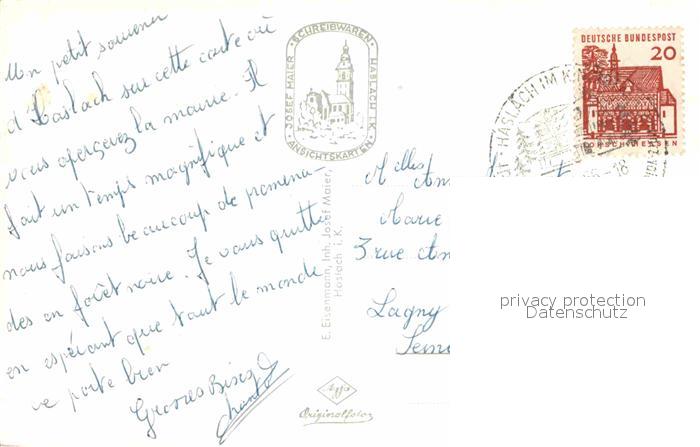 Un petit souvenir
d'Haslach sur cette carte où
vous aperçevez la mairie. Il
fait un temps magnifique et
nous faisons beaucoup de promena-
des en forêt noire. Je vous quitte
en espérant que tout le monde
se porte bien
Grosses Bises
Chantal
JOSEF MAIER · SCHREIBWAREN · HASLACH i.K.
ANSICHTSKARTEN
E. Eisenmann, Inh. Josef Maier,
Haslach i. K.
Agfa
Originalfoto
DEUTSCHE BUNDESPOST
20
LORSCH/HESSEN
HASLACH IM KIN
Marie
3 rue
Lagny
Seine
privacy protection
Datenschutz